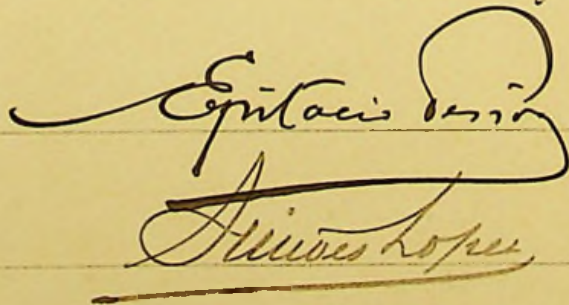 Epitacio Pessôa
Simões Lopes